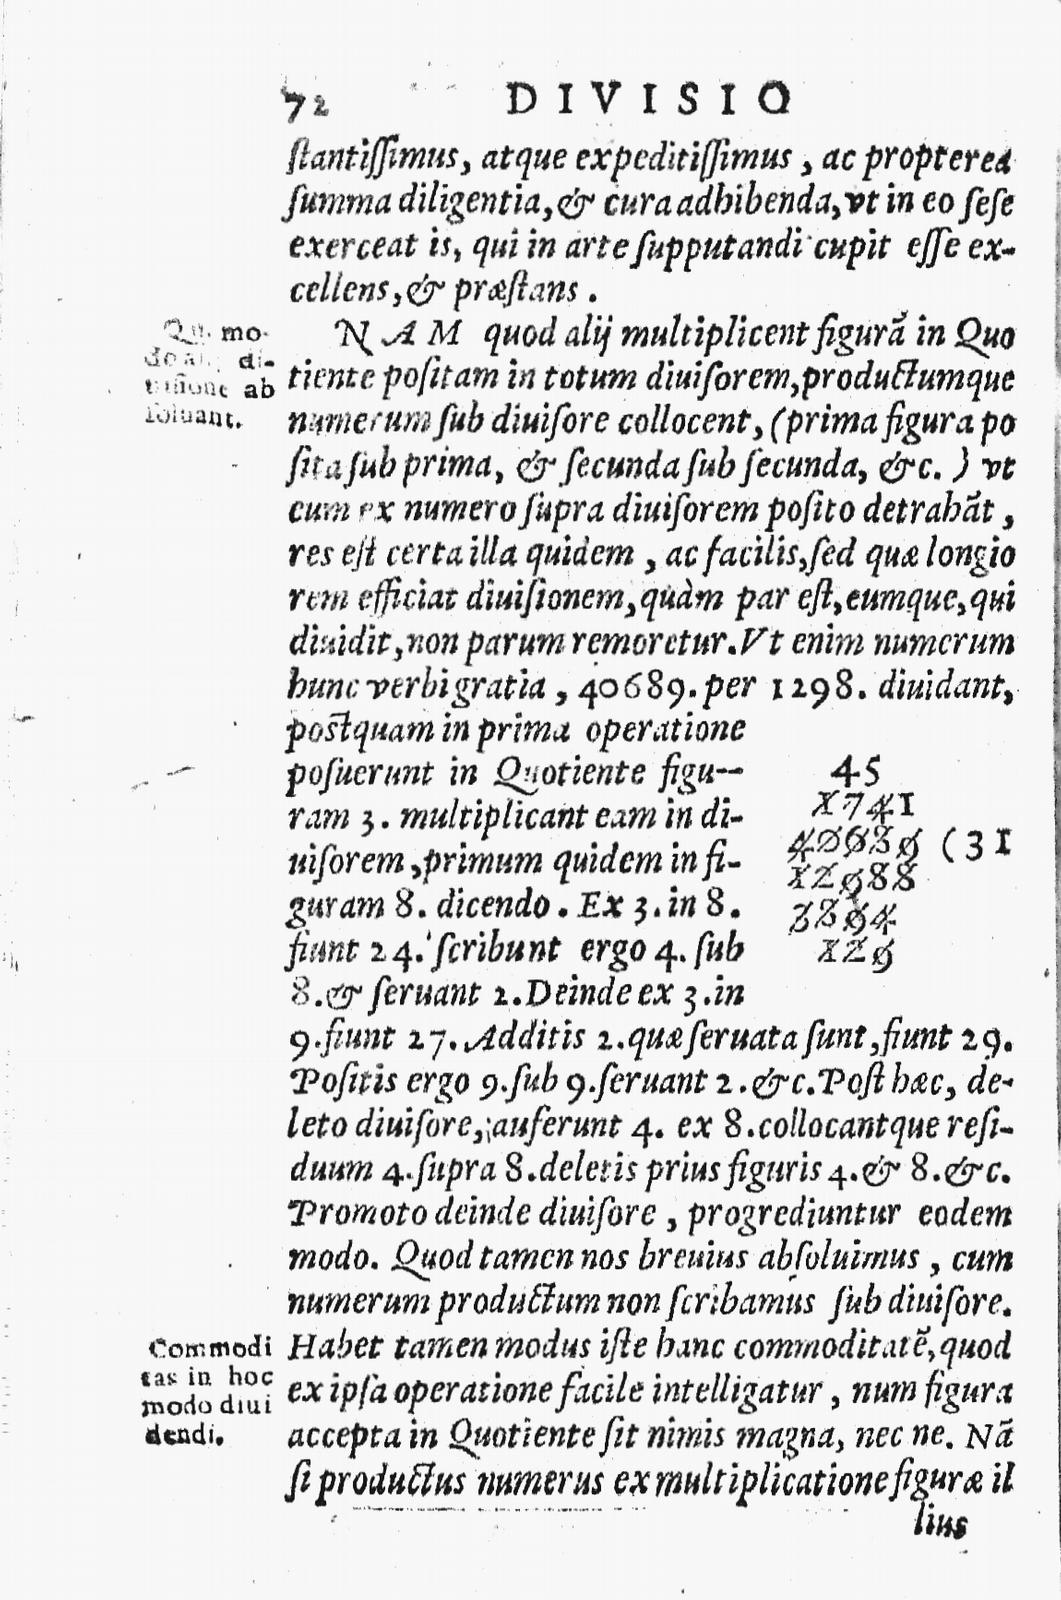 72 DIVISIO
ſtantiſſimus, atque expeditiſſimus, ac propterea
ſumma diligentia, & cura adhibenda, vt in eo ſeſe
exerceat is, qui in arte ſupputandi cupit eſſe ex-
cellens, & præſtans.
mo-
di-
ab
ſoluant.
NAM quod alij multiplicent figurā in Quo
tiente poſitam in totum diuiſorem, productumque
numerum ſub diuiſore collocent, (prima figura po
ſita ſub prima, & ſecunda ſub ſecunda, &c.) vt
cum ex numero ſupra diuiſorem poſito detrahāt,
res eſt certa illa quidem, ac facilis, ſed quæ longio
rem efficiat diuiſionem, quàm par eſt, eumque, qui
diuidit, non parum remoretur. Vt enim numerum
hunc verbi gratia, 40689. per 1298. diuidant,
poſtquam in prima operatione
poſuerunt in Quotiente figu--
ram 3. multiplicant eam in di-
uiſorem, primum quidem in fi-
guram 8. dicendo. Ex 3. in 8.
fiunt 24. ſcribunt ergo 4. ſub
8. & ſeruant 2. Deinde ex 3. in
45
1741
40689 (31
12988
3894
129
9. fiunt 27. Additis 2. quæ ſeruata ſunt, fiunt 29.
Poſitis ergo 9. ſub 9. ſeruant 2. &c. Poſt hæc, de-
leto diuiſore, auferunt 4. ex 8. collocantque reſi-
duum 4. ſupra 8. deletis prius figuris 4. & 8. &c.
Promoto deinde diuiſore, progrediuntur eodem
modo. Quod tamen nos breuius abſoluimus, cum
numerum productum non ſcribamus ſub diuiſore.
Commodi
tas in hoc
modo diui
dendi.
Habet tamen modus iſte hanc commoditatē, quod
ex ipſa operatione facile intelligatur, num figura
accepta in Quotiente ſit nimis magna, nec ne. Nā
ſi productus numerus ex multiplicatione figuræ il
lius